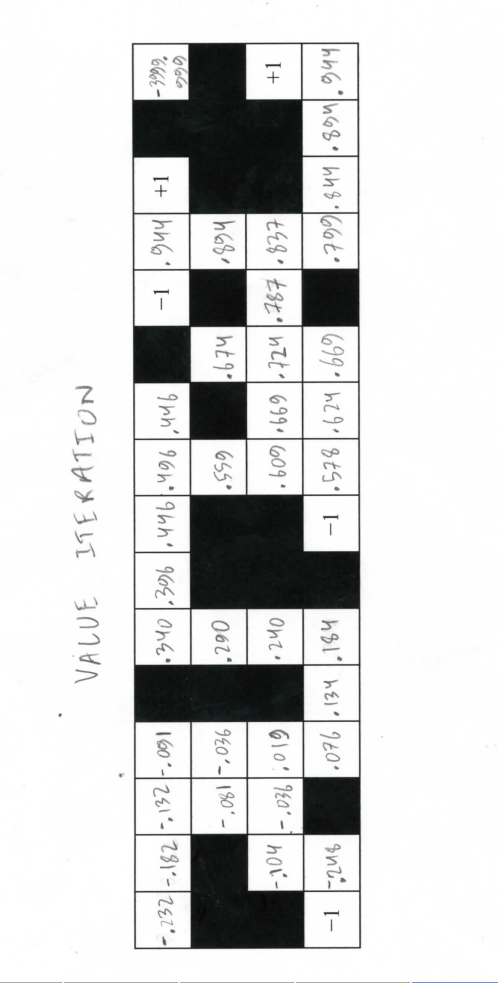 VALUE ITERATION
-.232 -.182 -.132 -.091 .340 .396 .446 .496 .446 -1 .944 +1
-.081 -.036 .290 .559 .674 .894
-.104 -.036 .019 .240 .609 .669 .724 .787 .837 +1
-1 -.248 .076 .134 .184 -1 .578 .624 .669 .799 .844 .894 .944